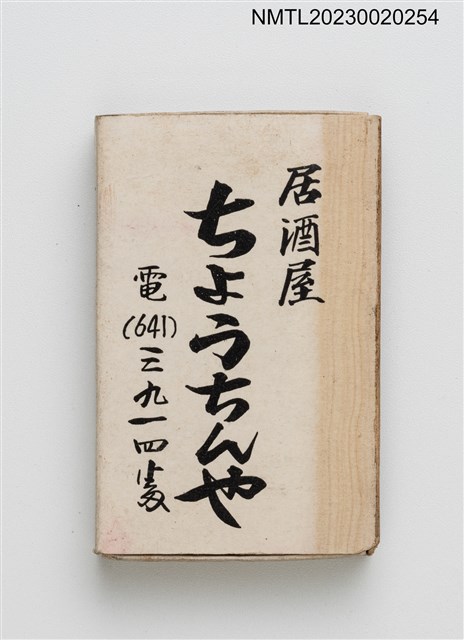 NMTL20230020254
居酒屋
ちょうちんや
電(641)三九一四番